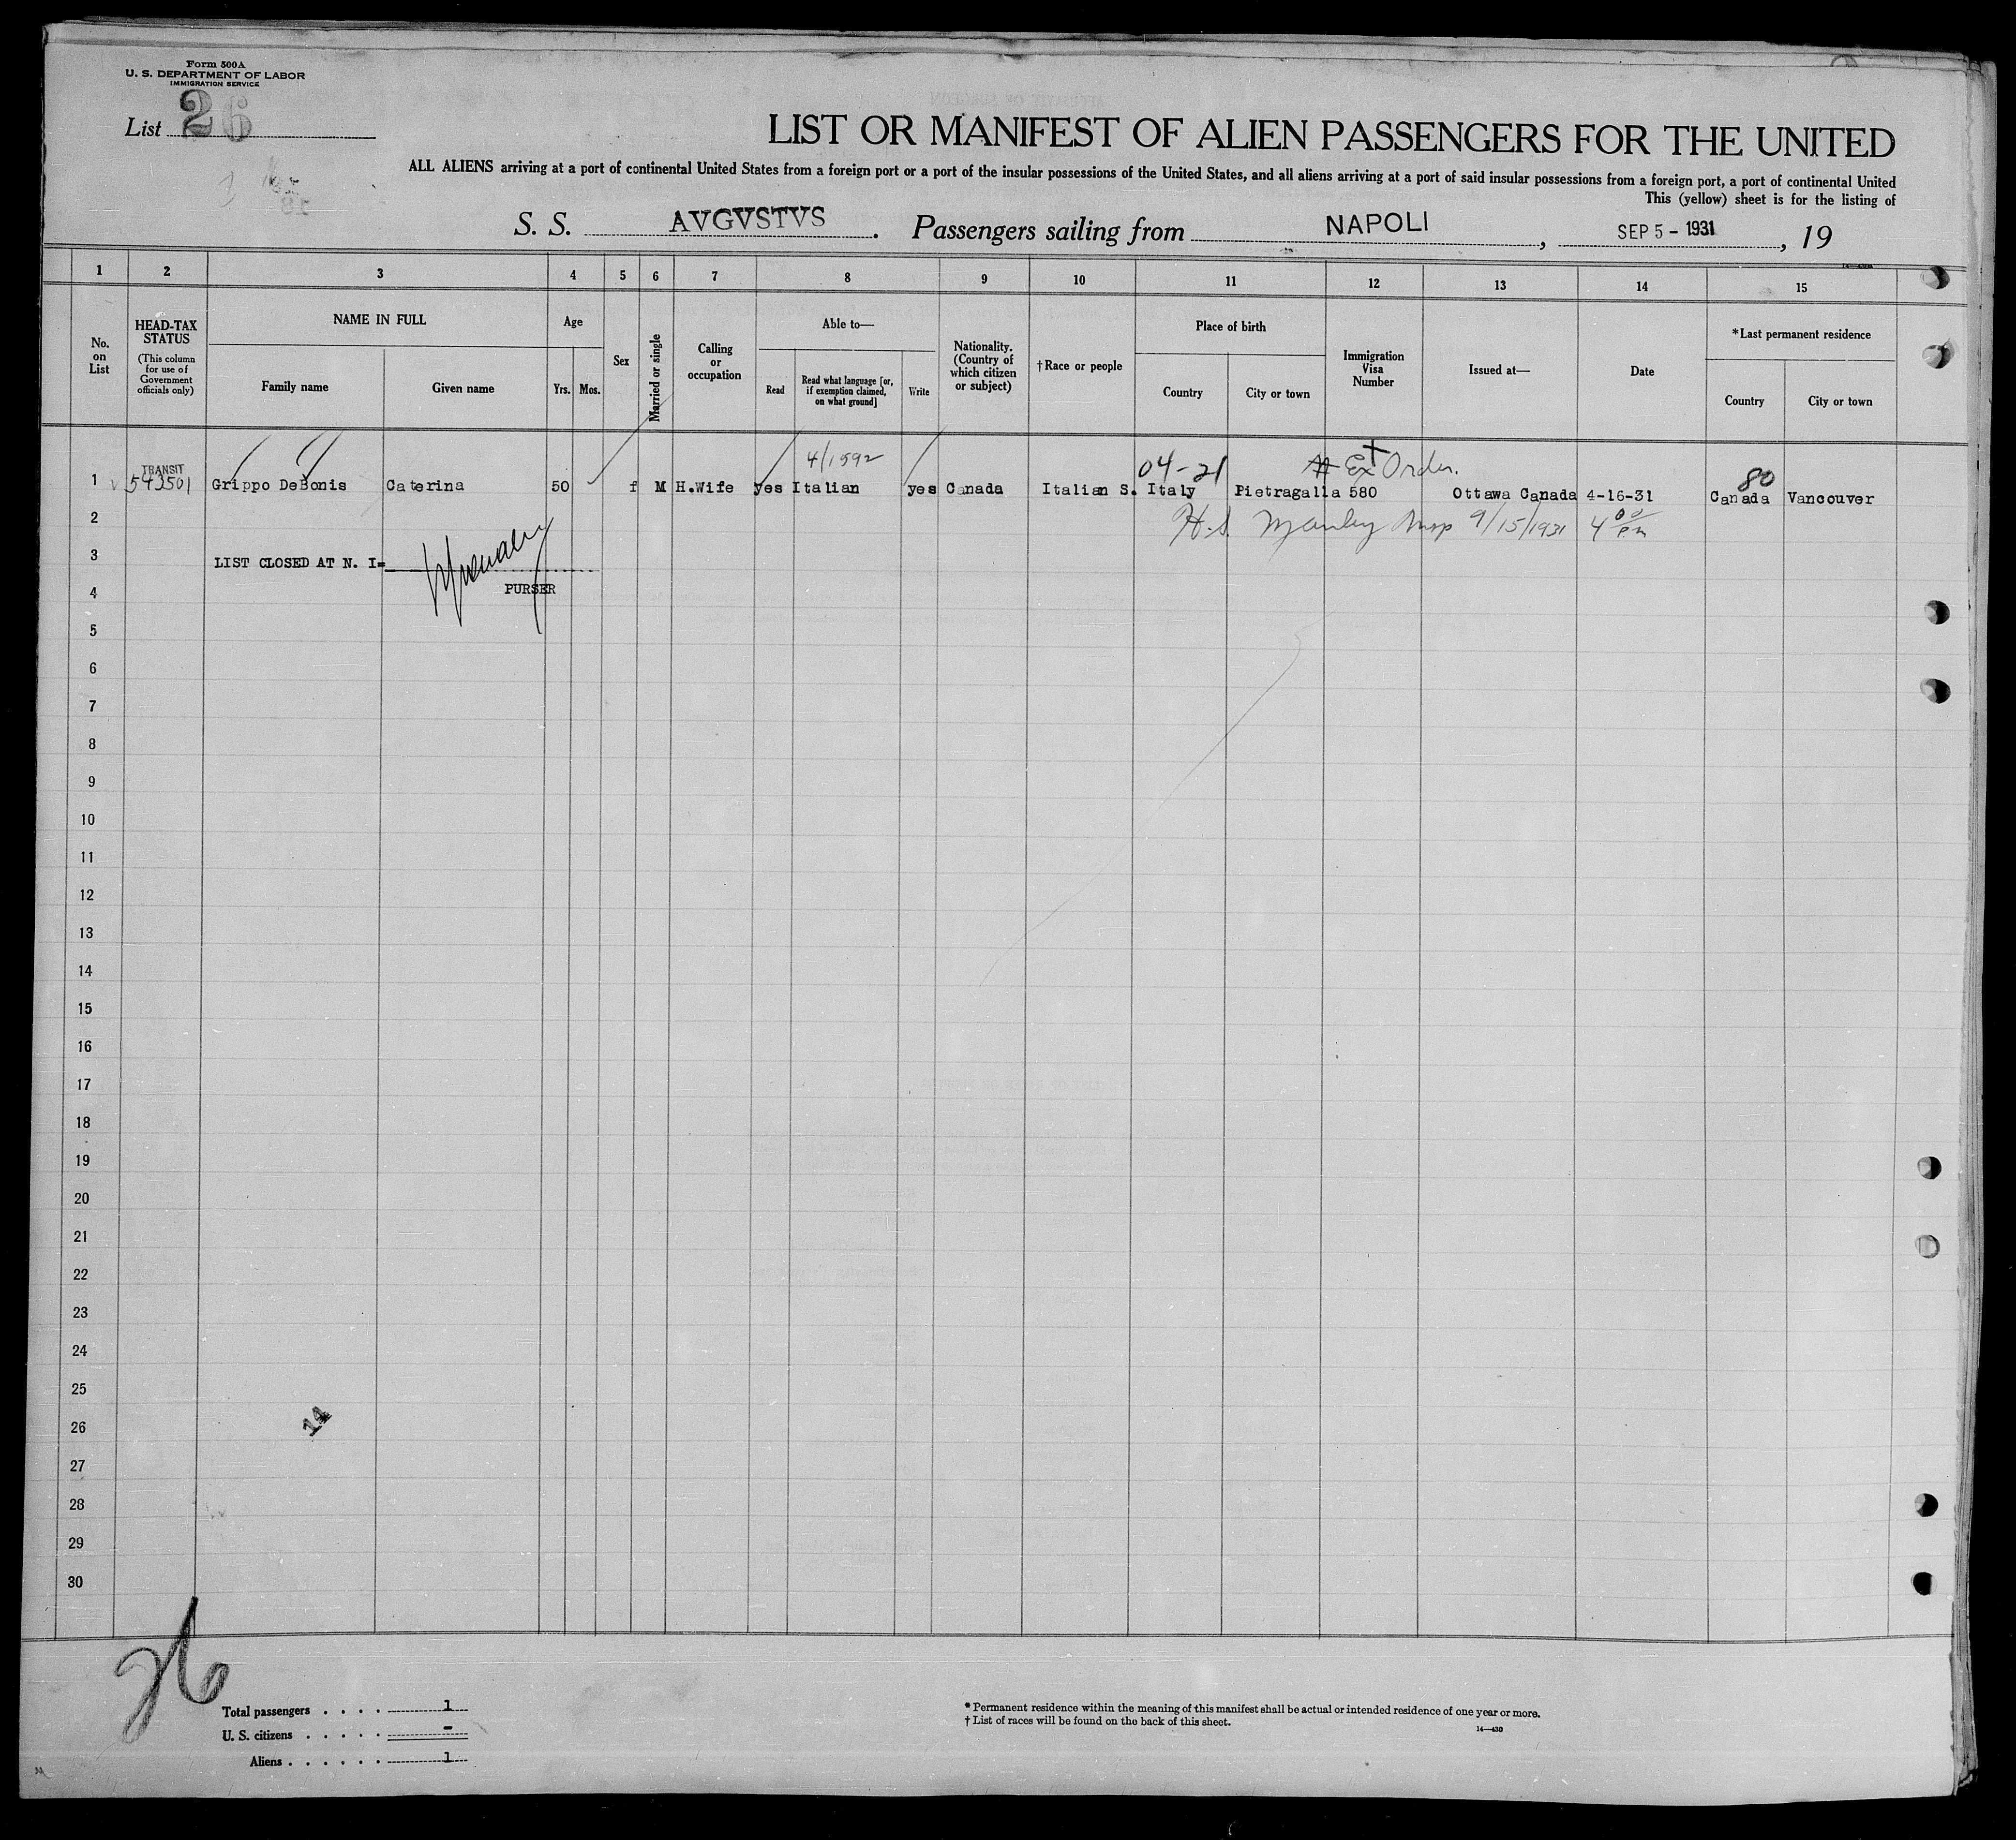 Form 500A
U. S. DEPARTMENT OF LABOR
IMMIGRATION SERVICE
List 26
LIST OR MANIFEST OF ALIEN PASSENGERS FOR THE UNITED
ALL ALIENS arriving at a port of continental United States from a foreign port or a port of the insular possessions of the United States, and all aliens arriving at a port of said insular possessions from a foreign port, a port of continental United
This (yellow) sheet is for the listing of
S. S. AVGVSTVS. Passengers sailing from NAPOLI, SEP 5 - 1931, 19
1 2 3 4 5 6 7 8 9 10 11 12 13 14 15
No. on List
HEAD-TAX STATUS
(This column for use of Government officials only)
NAME IN FULL
Family name
Given name
Age
Yrs.
Mos.
Sex
Married or single
Calling or occupation
Able to—
Read
Read what language [or, if exemption claimed, on what ground]
Write
Nationality. (Country of which citizen or subject)
†Race or people
Place of birth
Country
City or town
Immigration Visa Number
Issued at—
Date
*Last permanent residence
Country
City or town
4/1592 04-21 Ex Order. 80
TRANSIT
1 543501 Grippo DeBonis Caterina 50 f M H.Wife yes Italian yes Canada Italian S. Italy Pietragalla 580 Ottawa Canada 4-16-31 Canada Vancouver
2 H.S. Manley Insp 9/15/1931 4 00 P.M
3 LIST CLOSED AT N. I=
4 PURSER
5
6
7
8
9
10
11
12
13
14
15
16
17
18
19
20
21
22
23
24
25
26 14
27
28
29
30
26
Total passengers . . . . 1
U. S. citizens . . . . . -
Aliens . . . . . . 1
* Permanent residence within the meaning of this manifest shall be actual or intended residence of one year or more.
† List of races will be found on the back of this sheet.
14—430